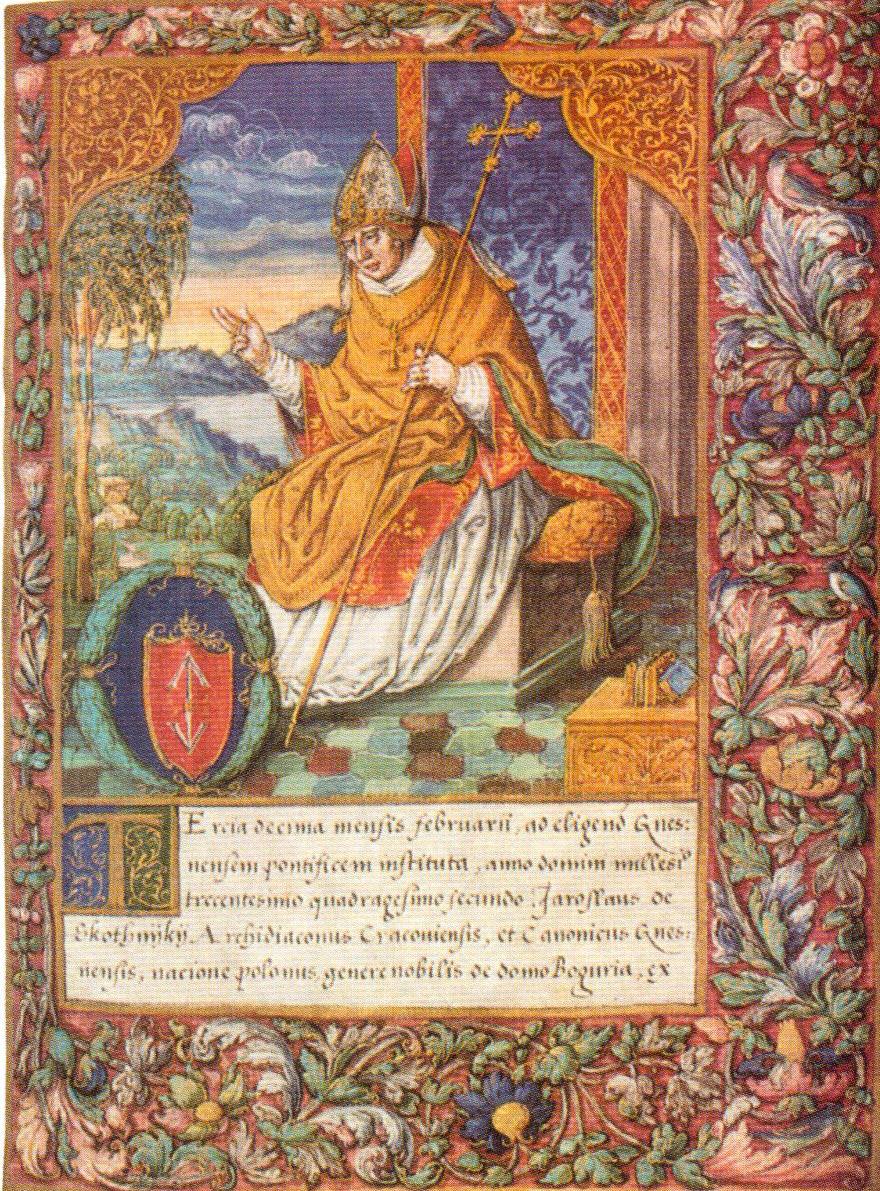 TErcia decima mensis februarii, ad eligend Gnes:
nensem pontificem instituta, anno domini milles°
trecentesimo quadragesimo secundo Jaroslaus de
Skothnijkÿ Archidiaconus Cracouiensis, et Canonicus Gnes:
nensis, nacione polonus, genere nobilis de domo Boguria, ex